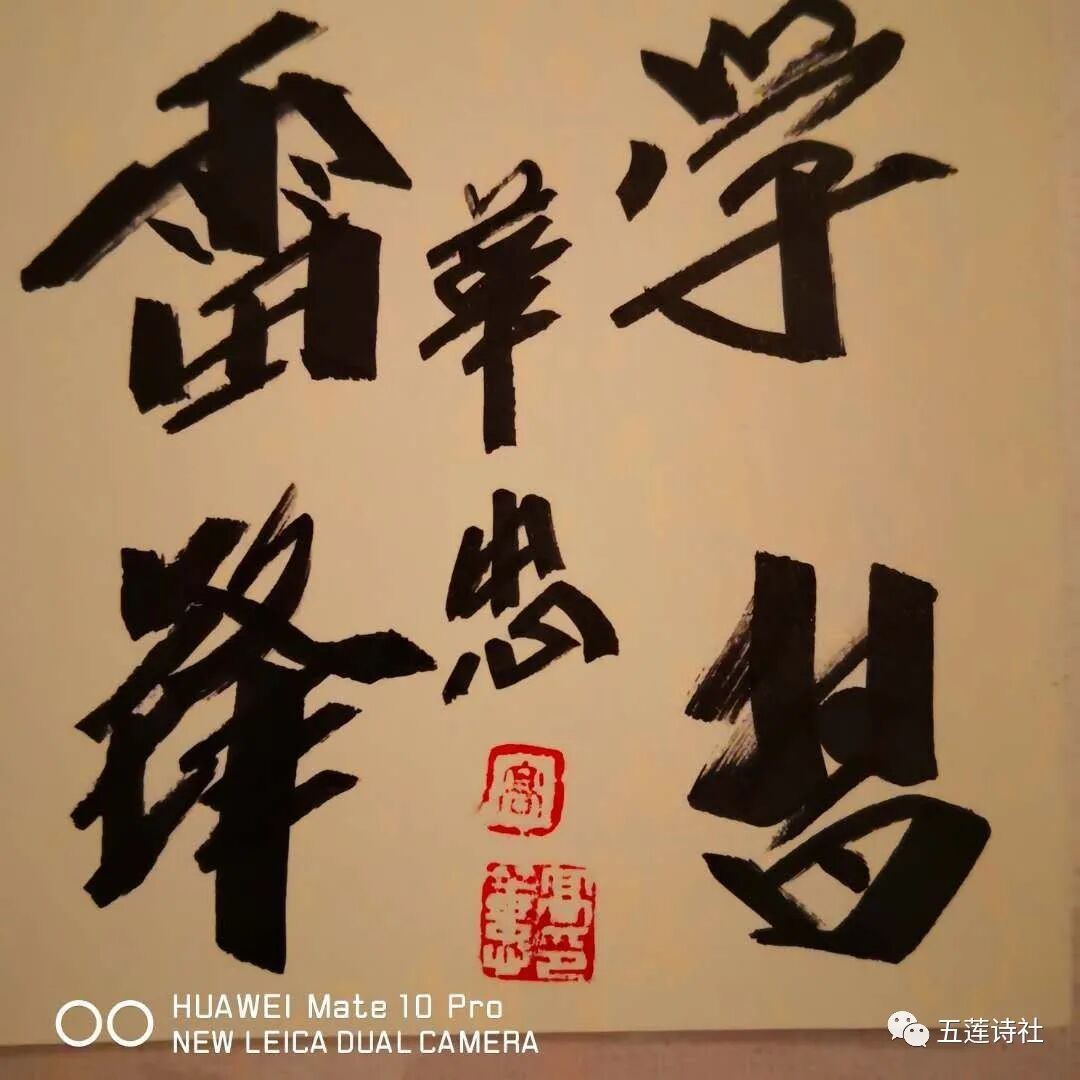 学習
雷鋒
華忠
高
高印華忠
HUAWEI Mate 10 Pro
NEW LEICA DUAL CAMERA
五莲诗社